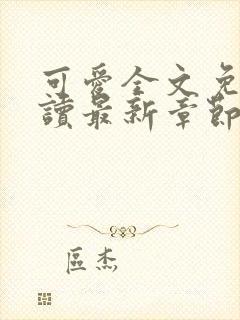 可愛全文免
讀最新章節
區杰